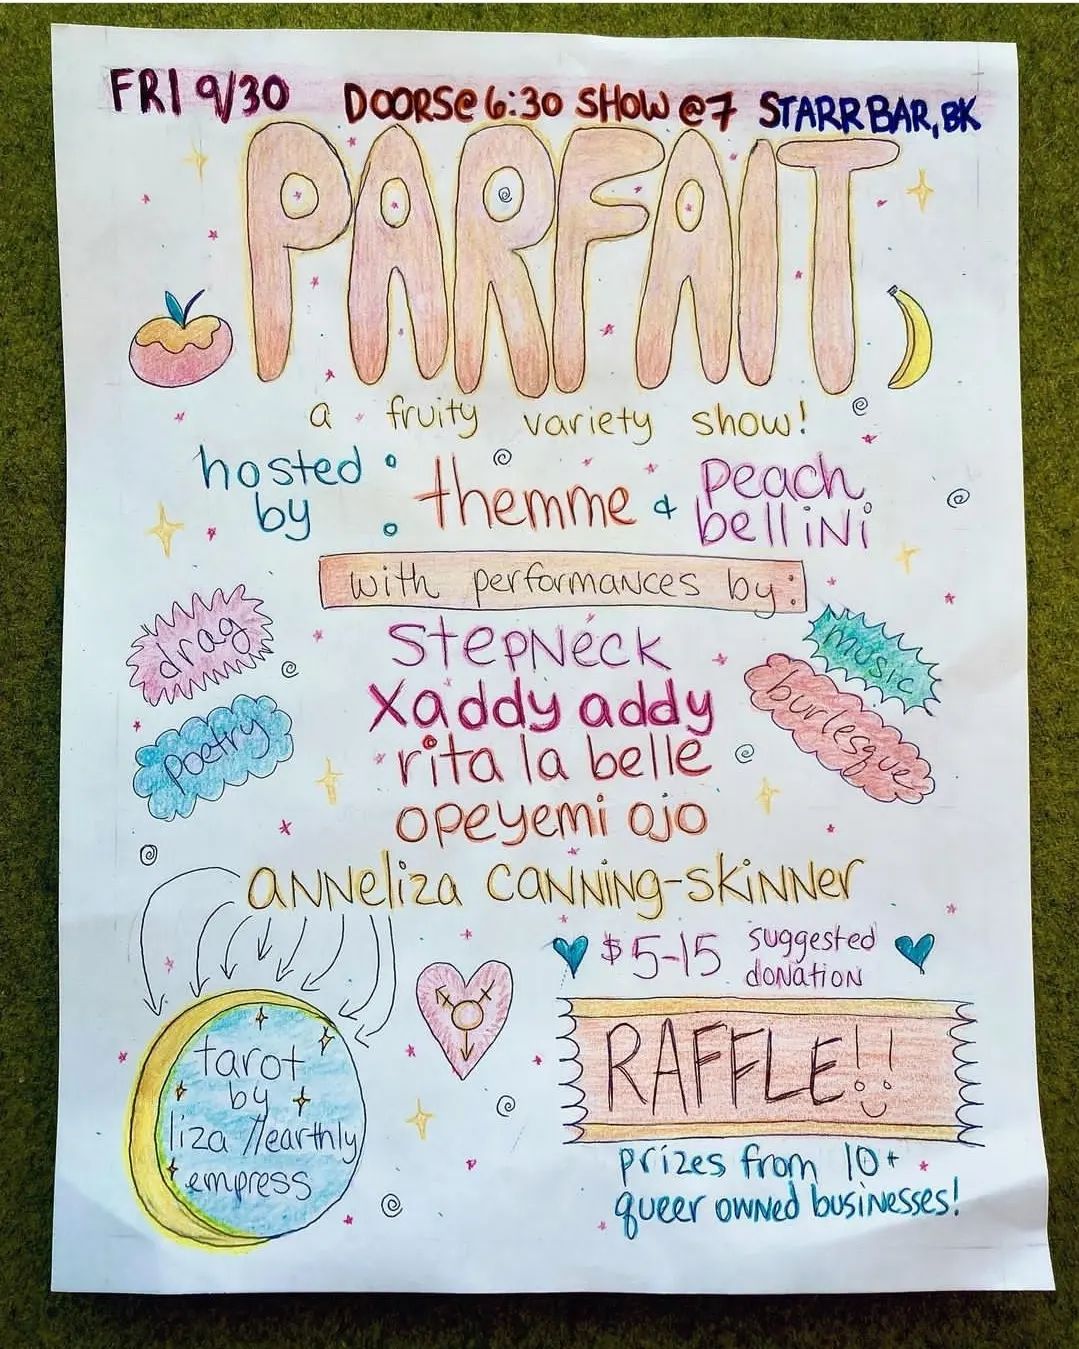 FRI 9/30 DOORS@6:30 SHOW@7 STARR BAR, BK
PARFAIT
a fruity variety show!
hosted by: themme & peach bellini
with performances by:
drag
music
stepneck
xaddy addy
burlesque
poetry
rita la belle
opeyemi ojo
anneliza canning-skinner
$5-15 suggested donation
tarot
by
liza // earthly
empress
RAFFLE!!
prizes from 10+
queer owned businesses!